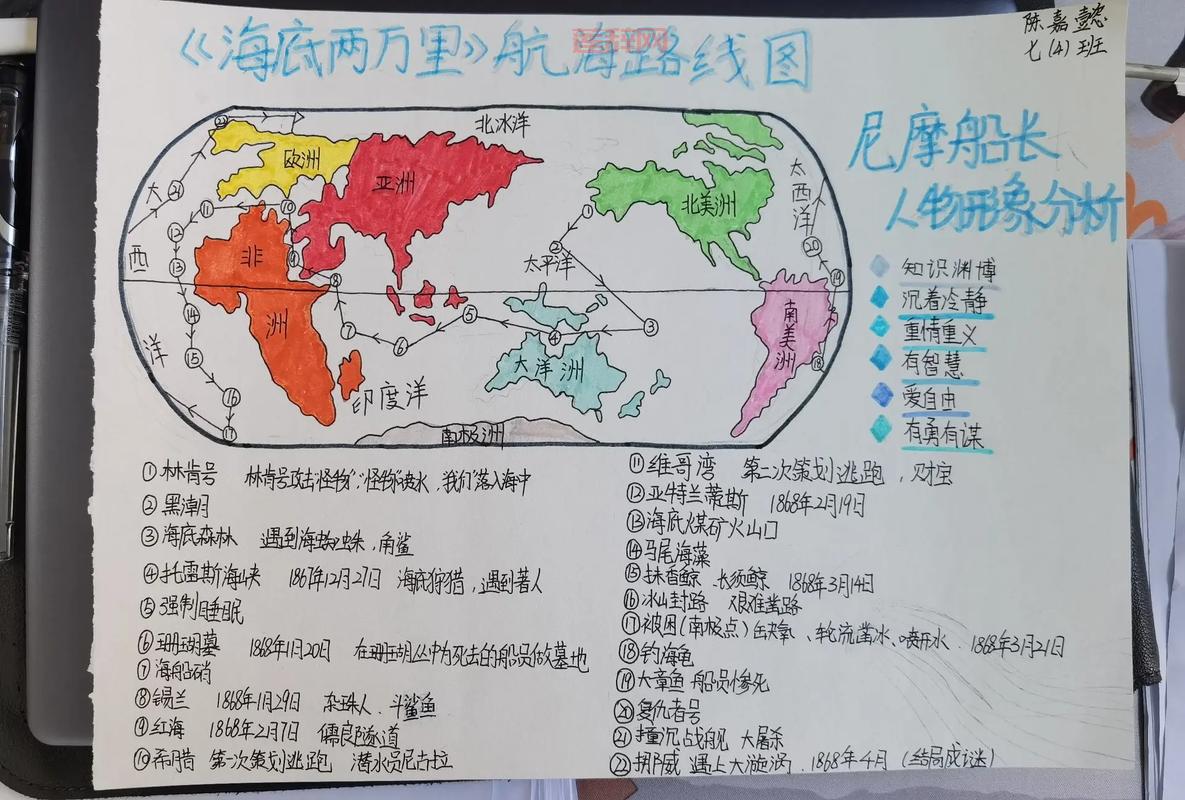 陈嘉懿
七(4)班
《海底两万里》航海路线图
尼摩船长
人物形象分析
知识渊博
沉着冷静
重情重义
有智慧
爱自由
有勇有谋
北冰洋
欧洲
亚洲
北美洲
大西洋
太平洋
非洲
南美洲
大洋洲
印度洋
南极洲
大西洋
①林肯号 林肯号攻击"怪物","怪物"喷水,我们落入海中
②黑潮
③海底森林 遇到海蜘蛛,角鲨
④托雷斯海峡 1867年12月27日 海底狩猎,遇到著人
⑤强制睡眠
⑥珊瑚墓 1868年1月20日 在珊瑚丛中为死去的船员做墓地
⑦海船硝
⑧锡兰 1868年1月29日 采珠人、斗鲨鱼
⑨红海 1868年2月7日 儒良隧道
⑩希腊 第一次策划逃跑 潜水员尼古拉
⑪维哥湾 第二次策划逃跑,财宝
⑫亚特兰蒂斯 1868年2月19日
⑬海底煤矿火山口
⑭马尾海藻
⑮抹香鲸 长须鲸 1868年3月14日
⑯冰山封路 艰难凿路
⑰被困(南极点)缺氧、轮流凿冰、喷开水 1868年3月21日
⑱钓海龟
⑲大章鱼 船员惨死
⑳复仇者号
㉑撞沉战舰 大屠杀
㉒挪威 遇上大漩涡、1868年4月(结局成谜)